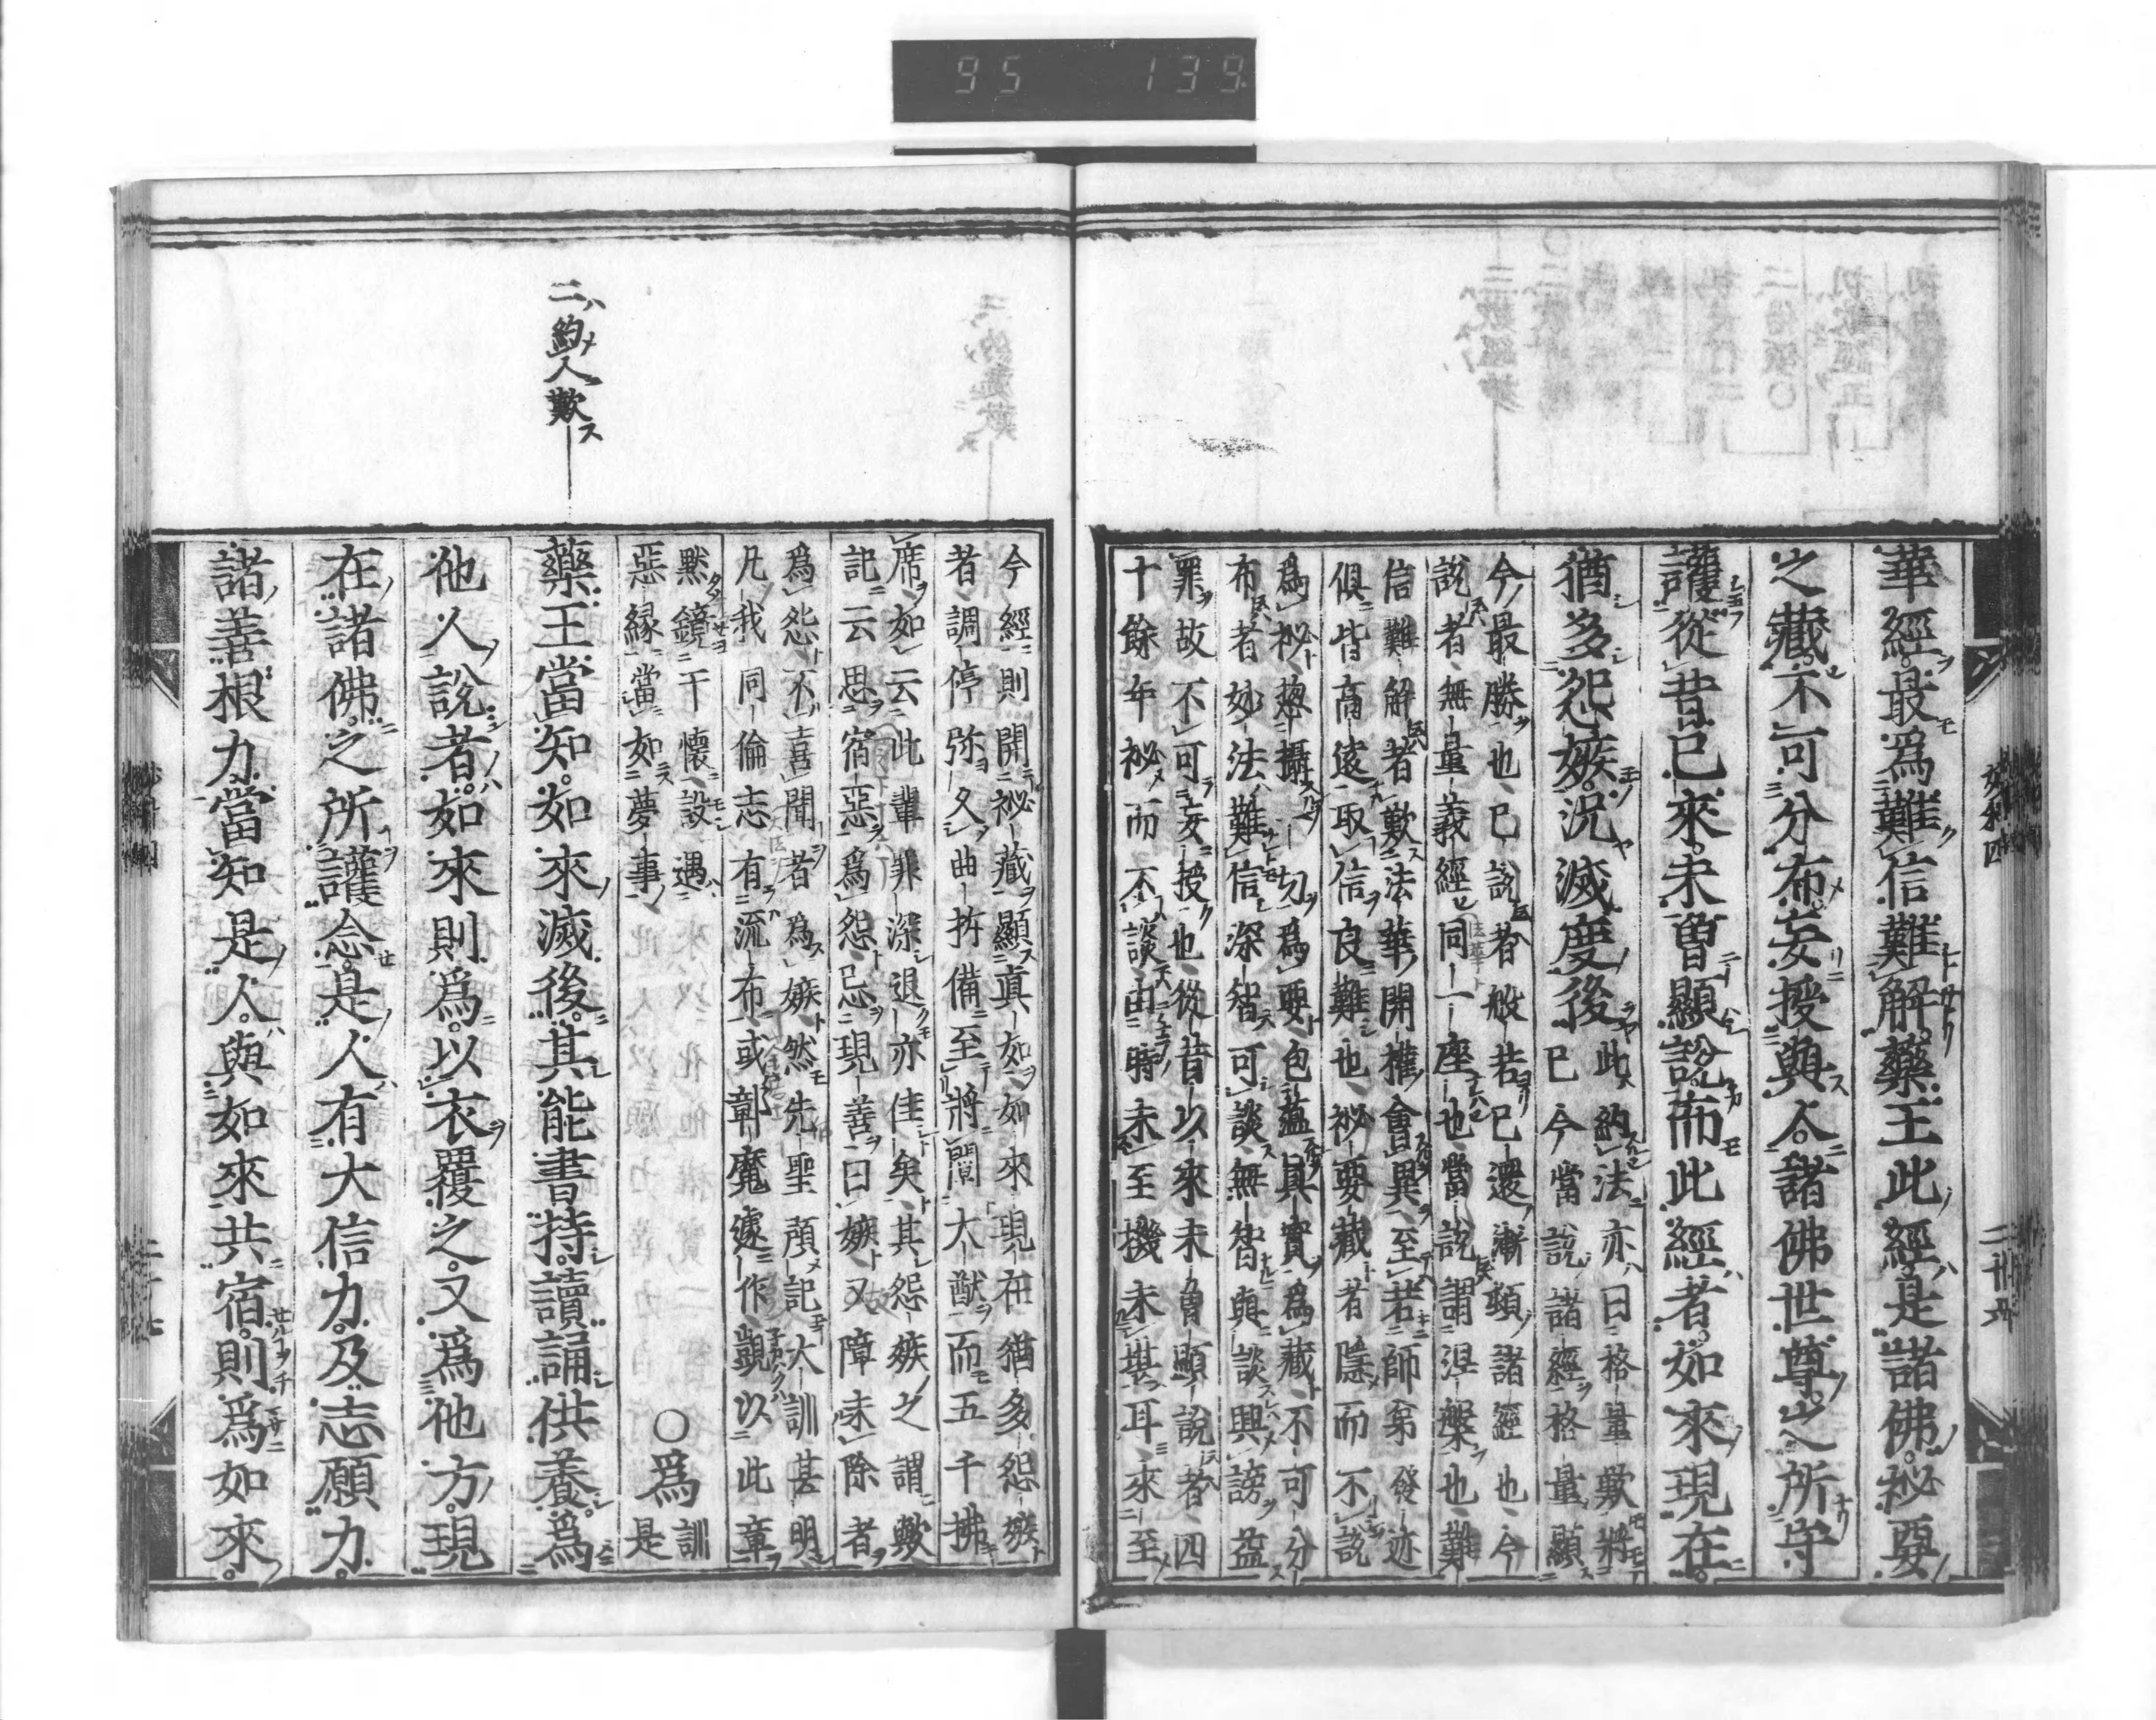 華經最爲難信難解藥王此經是諸佛祕要
之藏不可分布妄授與人諸佛世尊之所守
護從昔已來未曾顯說而此經者如來現在
猶多怨嫉況滅度後
此約法亦曰格量歎將
已今當說諸經格量顯
今最勝也已說者般若已還漸頓諸經也今
說者無量義經同一座也當說謂涅槃也難
信難解者歎法華開權會異至若師弟發迹
俱皆高遠取信良難也祕要藏者隱而不說
爲祕揔攝一切爲要包蘊其實爲藏不可分
布者妙法難信深智可談無智與談興謗益
罪故不可妄授也從昔以來未曾顯說者四
十餘年祕而不談由時未至機未堪耳來至
今經則開祕藏顯真如如來現在猶多怨嫉
者調停弥久曲折備至將闡大猷而五千拂
席如云此輩罪深退亦佳矣其怨嫉之謂歟
記云思宿惡爲怨忌現善曰嫉又障未除者
爲怨不喜聞者爲嫉然先聖顏記大訓甚明
凡我同倫志有流布或彰魔遽作覬以此章
默鏡于懷設遇
惡緣當如夢事
○爲
訓是
二約人歎
藥王當知如來滅後其能書持讀誦供養爲
他人說者如來則爲以衣覆之又爲他方現
在諸佛之所護念是人有大信力及志願力
諸善根力當知是人與如來共宿則爲如來
95 139